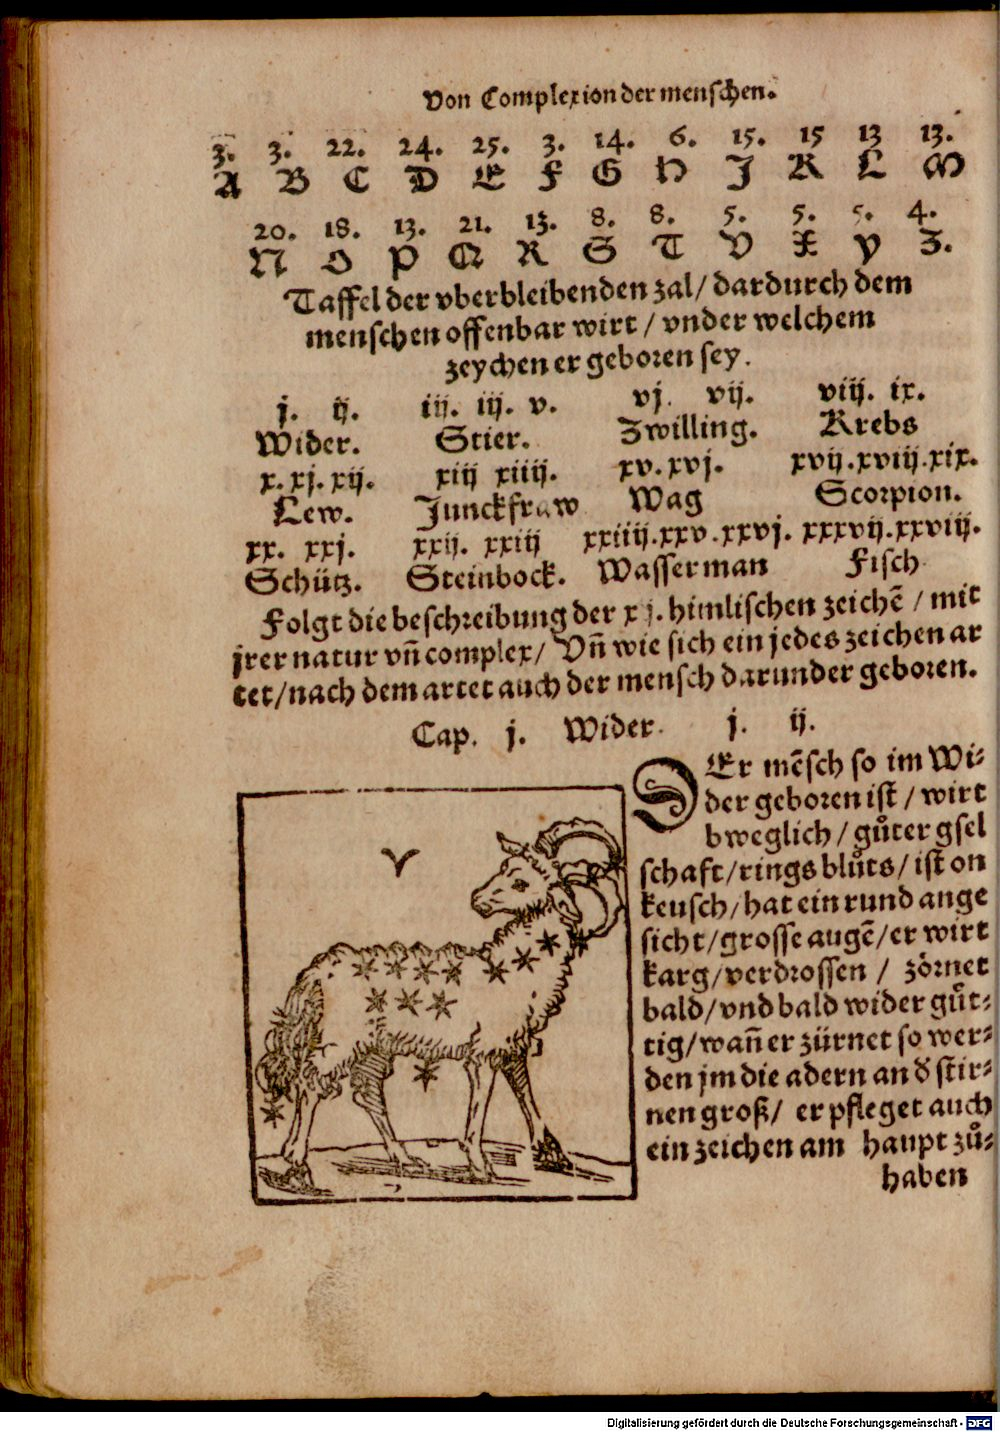 Von Complexion der menschen.
3. 3. 22. 24. 25. 3. 14. 6. 15. 15 13 13.
A B C D E F G H J K L M
20. 18. 13. 21. 13. 8. 8. 5. 5. 5. 4.
N O P Q R S T V X Y Z.
Taffel der vberbleibenden zal/ dardurch dem
menschen offenbar wirt / vnder welchem
zeychen er geboren sey.
j. ij. iij. iiij. v. vj. vij. viij. ix.
Wider. Stier. Zwilling. Krebs
x. xj. xij. xiij xiiij. xv. xvj. xvij. xviij. xix.
Lew. Junckfraw Wag Scorpion.
xx. xxj. xxij. xxiij xxiiij. xxv. xxvj. xxxvij. xxviij.
Schütz. Steinbock. Wasserman Fisch
Folgt die beschreibung der x j. himlischen zeichē / mit
jrer natur vñ complex/ Vñ wie sich ein jedes zeichen ar
tet/nach dem artet auch der mensch darunder geboren.
Cap. j. Wider. j. ij.
DEr mēsch so im Wi-
der geboren ist / wirt
bweglich / gůter gsel
schaft/rings blůts/ ist on
keusch/hat ein rund ange
sicht/grosse augē/er wirt
karg/verdrossen / zörnet
bald/vnd bald wider gůt-
tig/wañ er zürnet so wer-
den jm die adern an d̕ stir-
nen groß/ er pfleget auch
ein zeichen am haupt zů-
haben
Digitalisierung gefördert durch die Deutsche Forschungsgemeinschaft - DFG